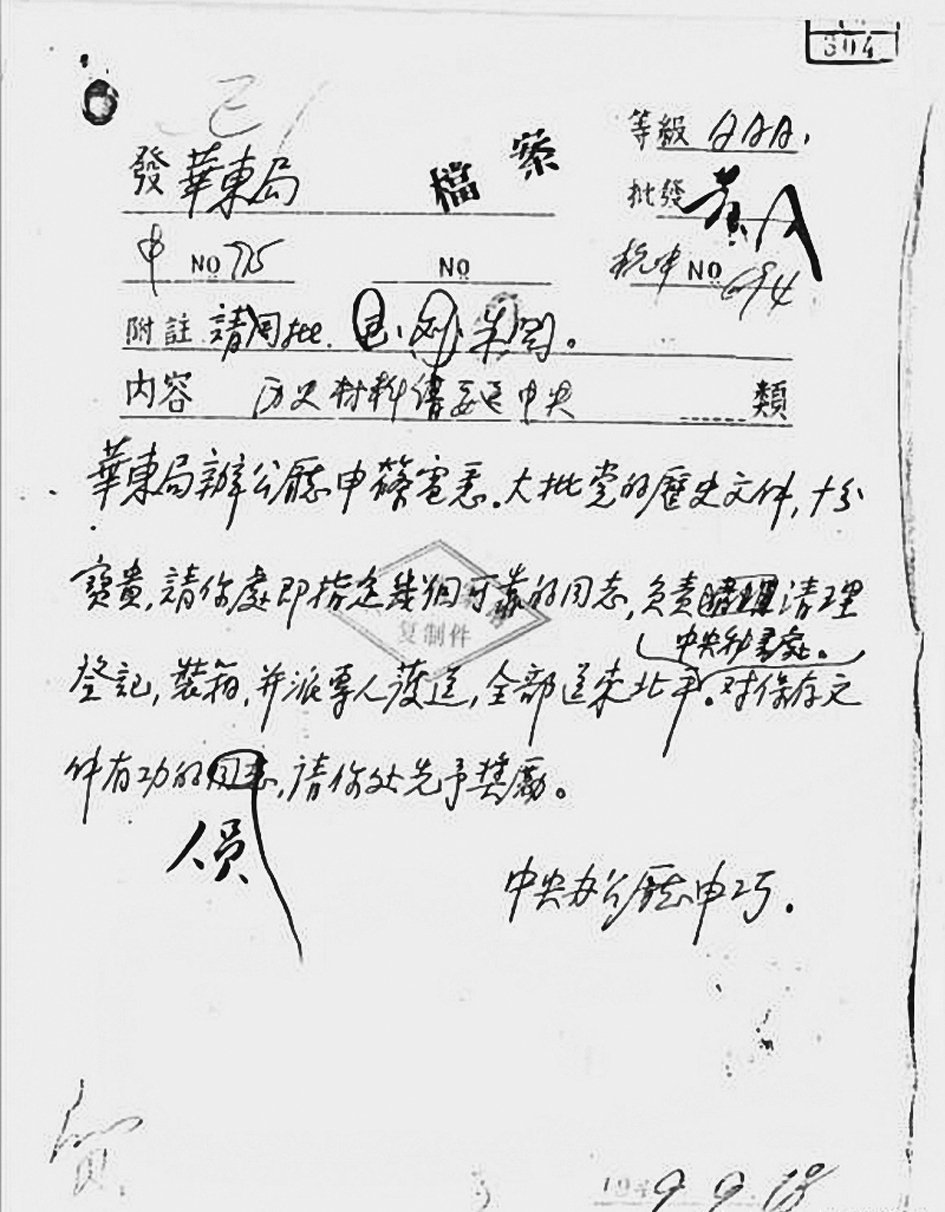 304
等級 AAA,
發 華東局 檔案
批發
申 NO 775 NO
NO 694
附註 請周批. 毛、刘、朱閱。
内容 历史材料儘要送中央 類
華東局辦公廳申篠電悉。大批党的歷史文件,十分
寶貴,請你處即指定幾個可靠的同志,負責清理
复制件
中央秘書處。
登記,裝箱,并派專人護送,全部送来北平。对保存文
件有功的同志,請你处先予奬勵。
人員
中央办公廳申巧.
賀
1949 9 18